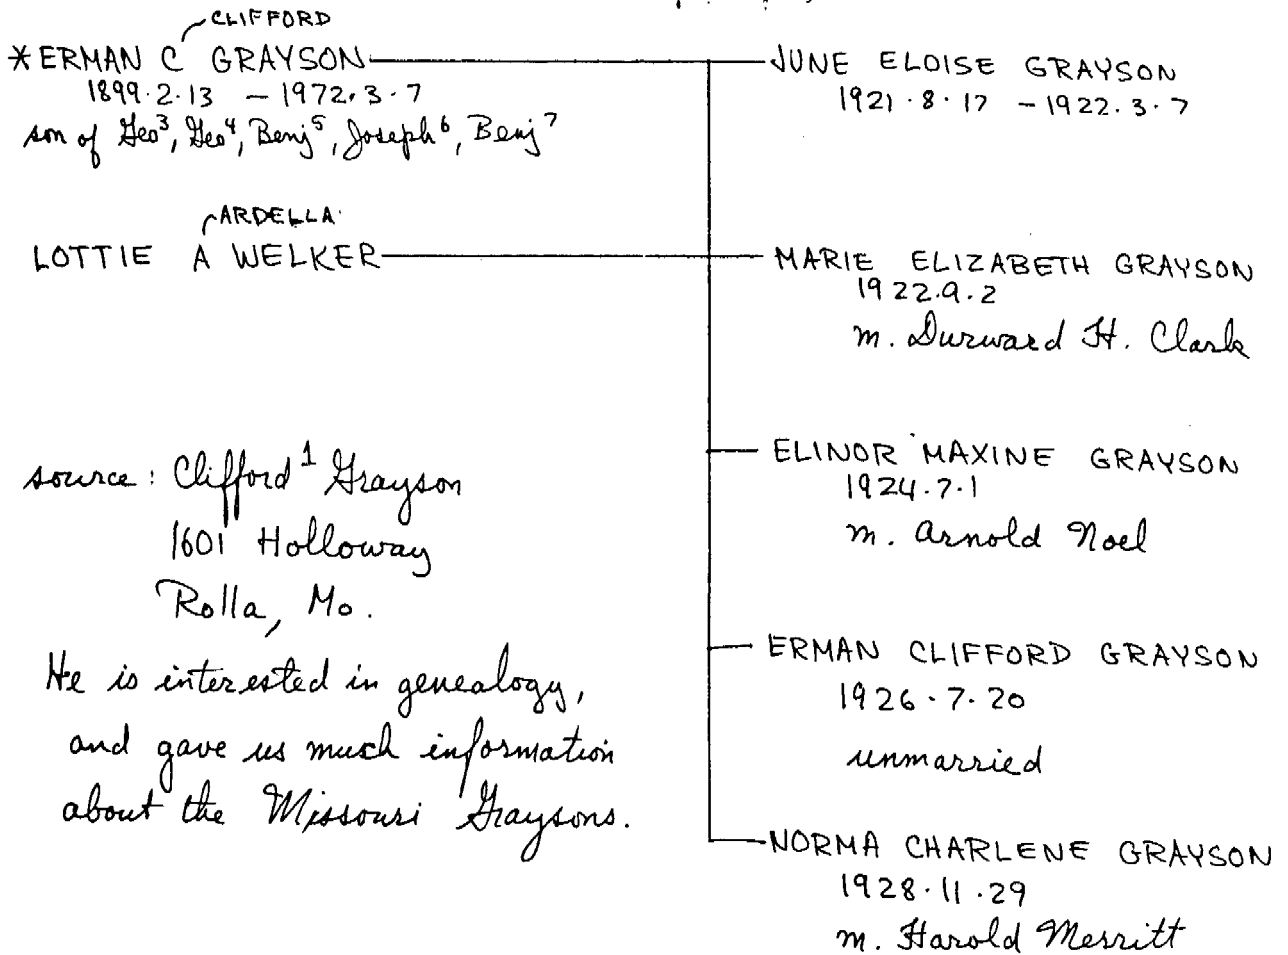 CLIFFORD
*ERMAN C GRAYSON
1899.2.13 – 1972.3.7
son of Geo³, Geo⁴, Benj⁵, Joseph⁶, Benj⁷
ARDELLA
LOTTIE A WELKER
source: Clifford¹ Grayson
1601 Holloway
Rolla, Mo.
He is interested in genealogy,
and gave us much information
about the Missouri Graysons.
JUNE ELOISE GRAYSON
1921.8.17 – 1922.3.7
MARIE ELIZABETH GRAYSON
1922.9.2
m. Durward H. Clark
ELINOR MAXINE GRAYSON
1924.7.1
m. Arnold Noel
ERMAN CLIFFORD GRAYSON
1926.7.20
unmarried
NORMA CHARLENE GRAYSON
1928.11.29
m. Harold Merritt